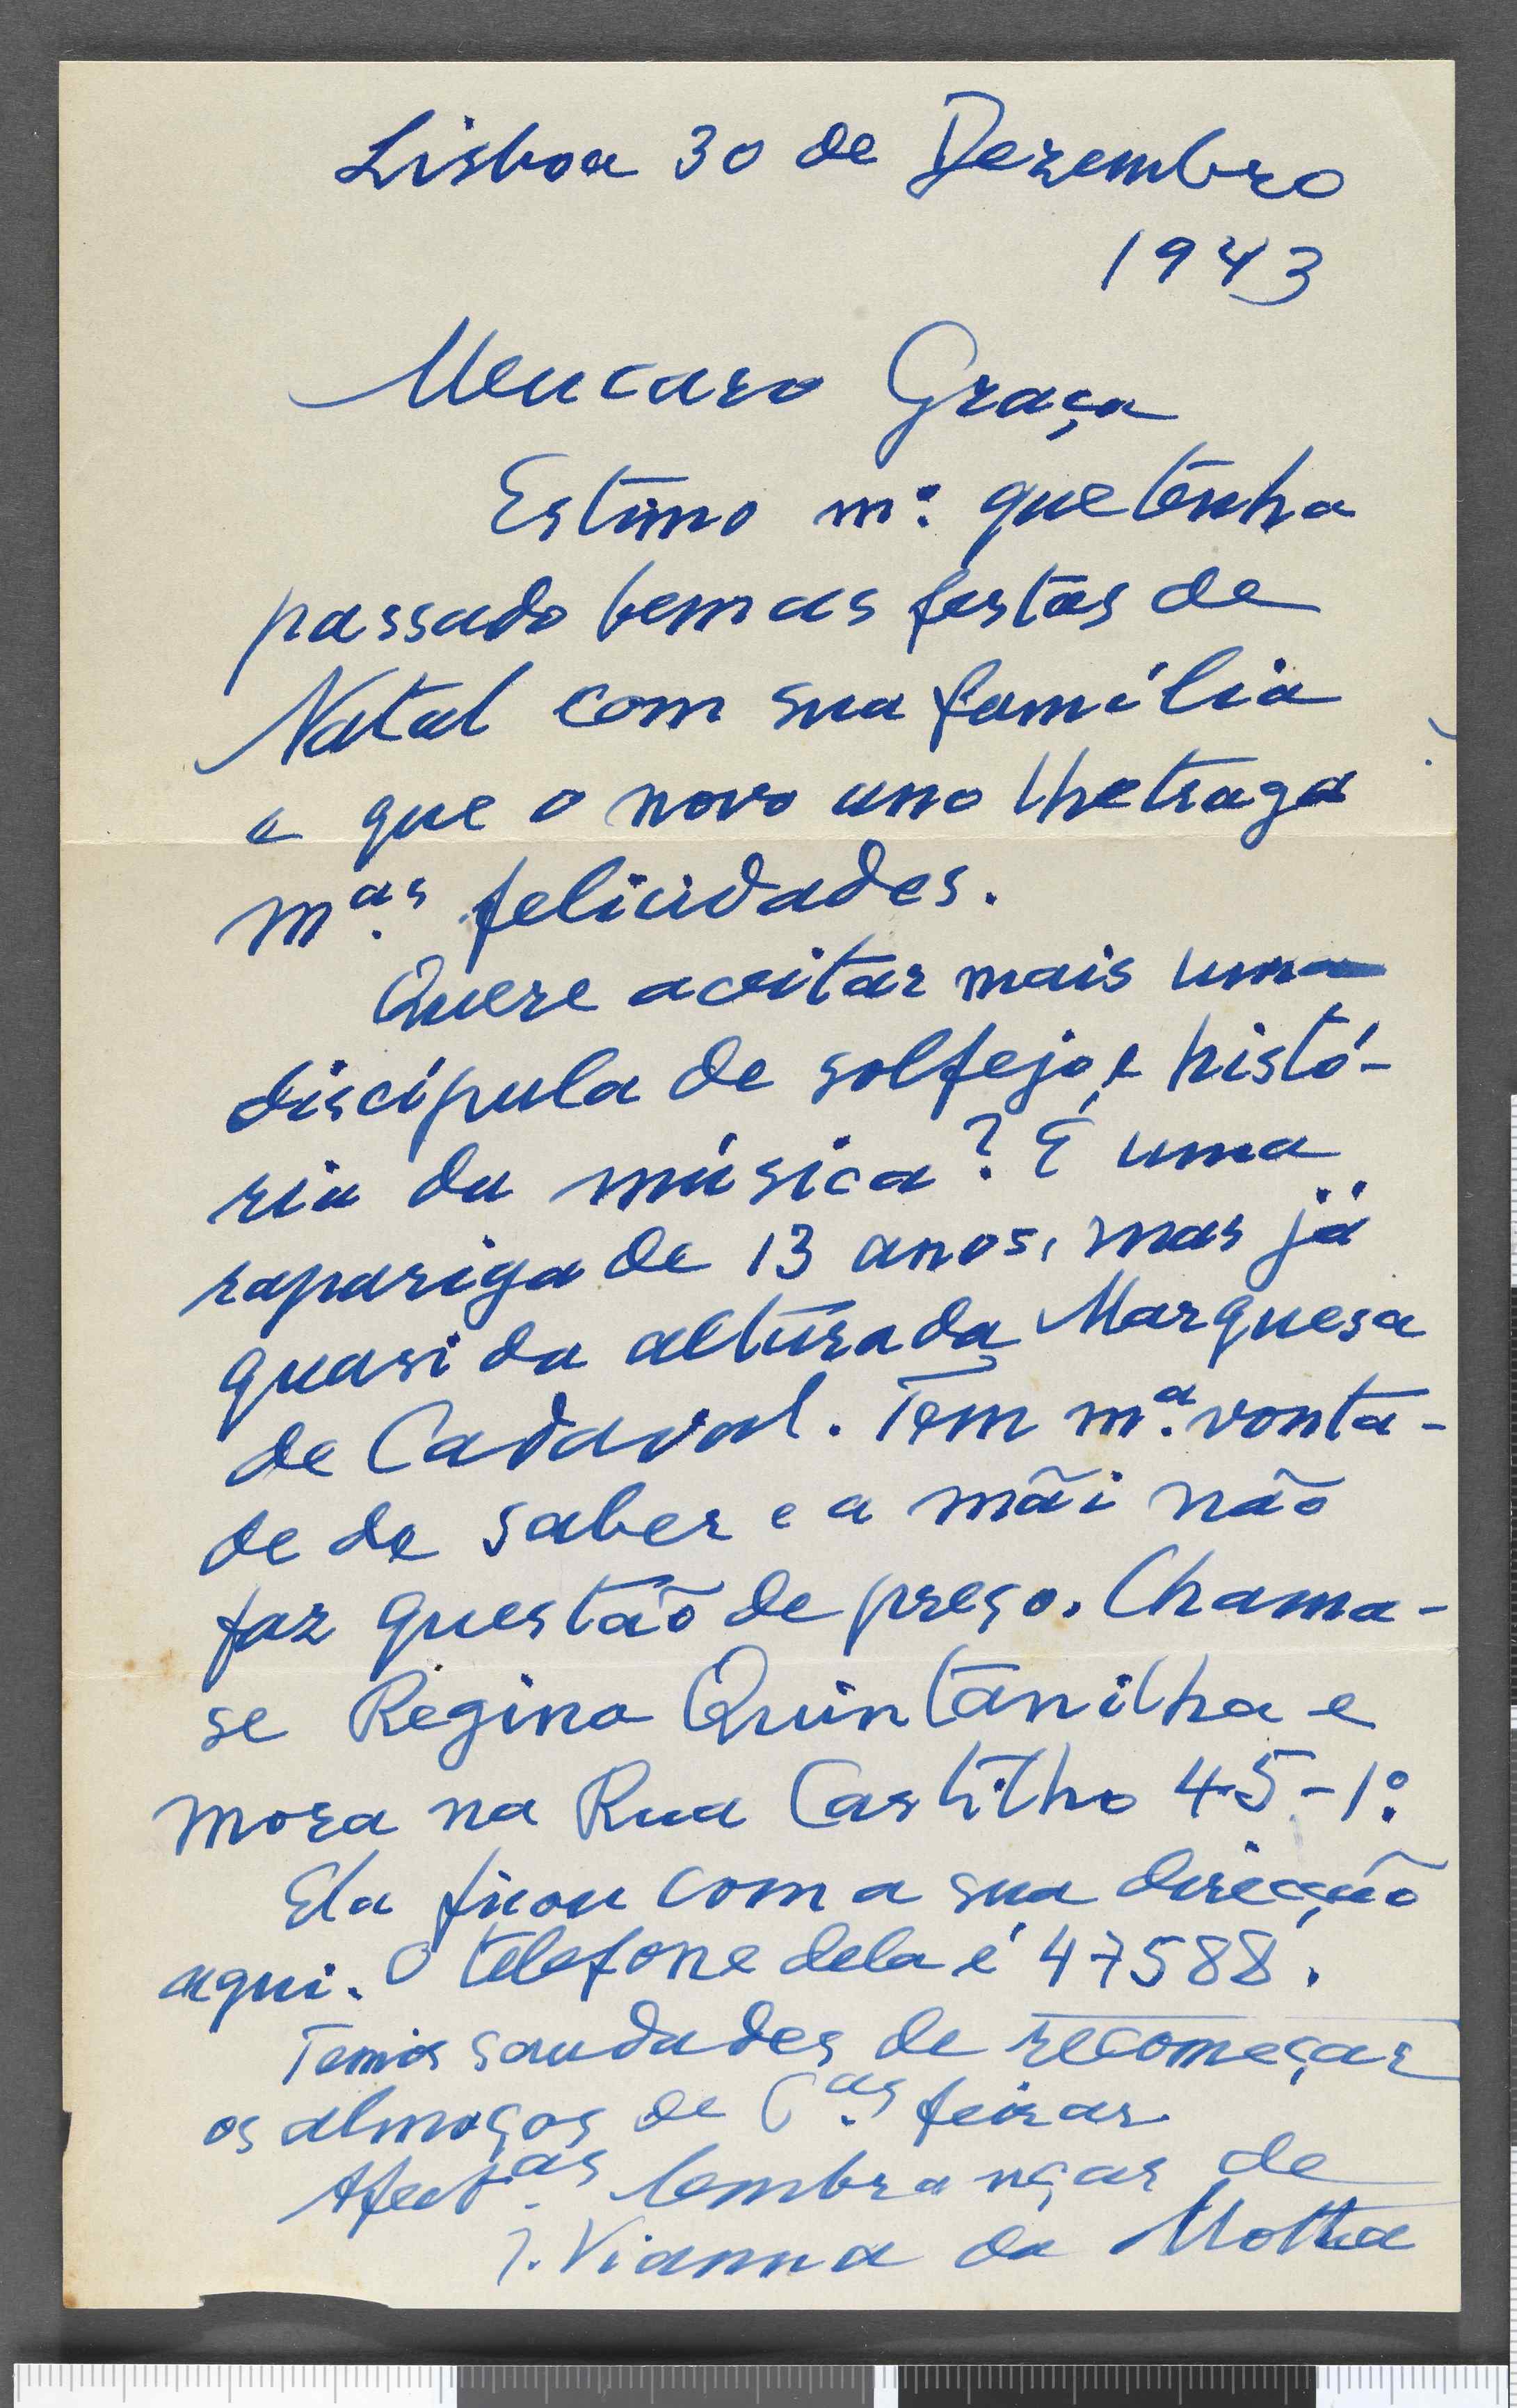 Lisboa 30 de Dezembro
1943
Meu caro Graça
Estimo m.º que tenha
passado bem as festas de
Natal com sua família
e que o novo ano lhe traga
m.as felicidades.
Quere aceitar mais uma
discípula de solfejo e histó-
ria da música? É uma
rapariga de 13 anos, mas já
quasi da altura da Marquesa
de Cadaval. Tem m.ª vonta-
de de saber e a mãi não
faz questão de preço. Chama-
se Regina Quintanilha e
mora na Rua Castilho 45-1º
Ela ficou com a sua direcção
aqui. O telefone dela é 47588.
Temos saudades de recomeçar
os almoços de 6.as feiras
Afect.as lembranças de
J. Vianna da Motta